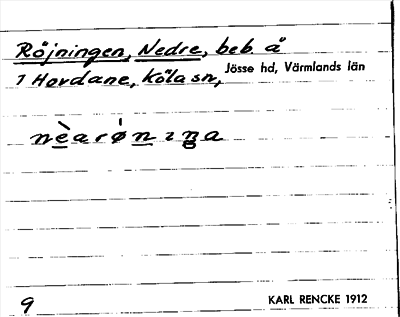 Röjningen, Nedre, beb. å
1 Hovdane, Köla sn, Jösse hd, Värmlands län
nèarǿnıŋa
9 KARL RENCKE 1912